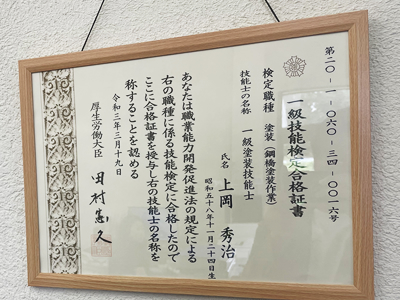 第二〇-一-〇六〇-三四-〇〇一六号
一級技能検定合格証書
検定職種　塗装（鋼橋塗装作業）
技能士の名称　一級塗装技能士
氏名　上岡 秀治
昭和五十八年十一月二十四日生
あなたは職業能力開発促進法の規定による
右の職種に係る技能検定に合格したので
ここに合格証書を授与し右の技能士の名称を
称することを認める
令和三年三月十九日
厚生労働大臣　田村憲久